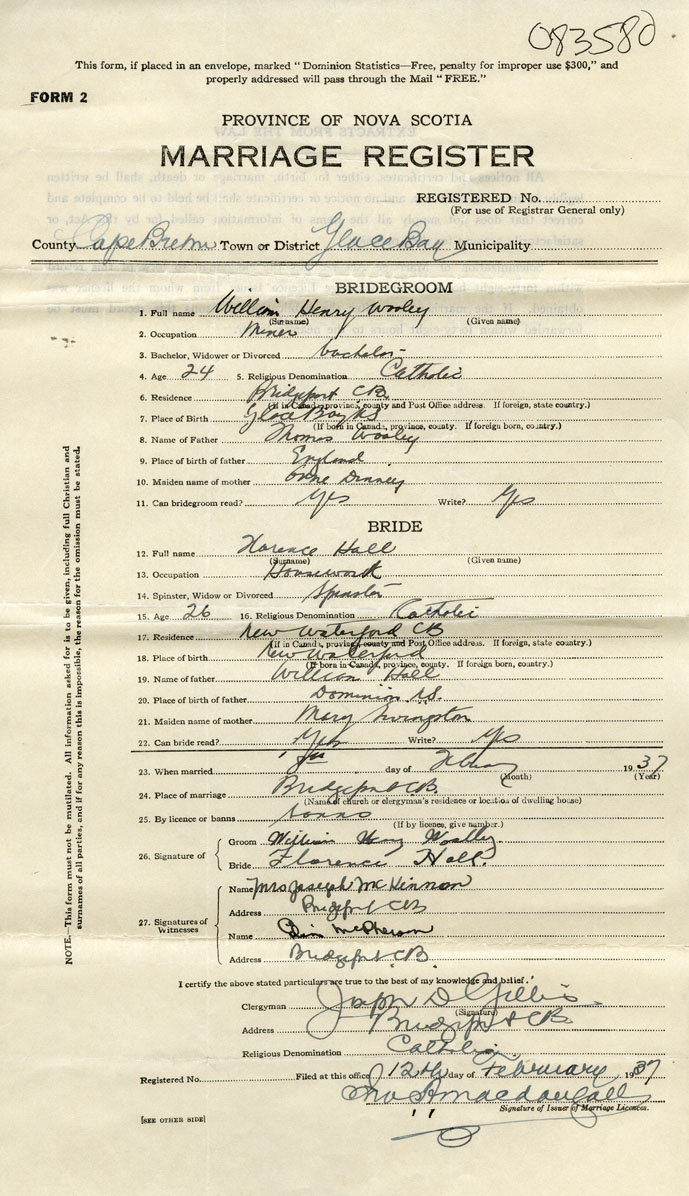 083580
This form, if placed in an envelope, marked "Dominion Statistics—Free, penalty for improper use $300," and
properly addressed will pass through the Mail "FREE."
FORM 2
PROVINCE OF NOVA SCOTIA
MARRIAGE REGISTER
REGISTERED No.
(For use of Registrar General only)
County Cape Breton Town or District Glace Bay Municipality
BRIDEGROOM
1. Full name William Henry Wooley
(Surname) (Given name)
2. Occupation Miner
3. Bachelor, Widower or Divorced bachelor
4. Age 24 5. Religious Denomination Catholic
6. Residence Bridgeport CB
(If in Canada, province, county and Post Office address. If foreign, state country.)
7. Place of Birth Glace Bay NS
(If born in Canada, province, county. If foreign born, country.)
8. Name of Father Thomas Wooley
9. Place of birth of father England
10. Maiden name of mother
11. Can bridegroom read? Yes Write? Yes
BRIDE
12. Full name Florence Hall
(Surname) (Given name)
13. Occupation Housework
14. Spinster, Widow or Divorced Spinster
15. Age 26 16. Religious Denomination Catholic
17. Residence New Waterford CB
(If in Canada, province, county and Post Office address. If foreign, state country.)
18. Place of birth New Waterford
(If born in Canada, province, county. If foreign born, country.)
19. Name of father William Hall
20. Place of birth of father Dominion N.S.
21. Maiden name of mother Mary Livingston
22. Can bride read? Yes Write? Yes
23. When married day of 1937
(Month) (Year)
24. Place of marriage Bridgeport C.B.
(Name of church or clergyman's residence or location of dwelling house)
25. By licence or banns banns
(If by licence, give number.)
26. Signature of
Groom William Henry Woolley
Bride Florence Hall.
27. Signatures of Witnesses
Name Mrs Joseph McKinnon
Address Bridgeport CB
Name McPherson
Address Bridgeport C.B.
I certify the above stated particulars are true to the best of my knowledge and belief.
Clergyman Joseph D Gillis
(Signature)
Address Bridgeport CB
Religious Denomination Catholic
Registered No. Filed at this office 12th day of February 1937
Macdougall
Signature of Issuer of Marriage Licences.
[SEE OTHER SIDE]
NOTE.—This form must not be mutilated. All information asked for is to be given, including full Christian and
surnames of all parties, and if for any reason this is impossible, the reason for the omission must be stated.